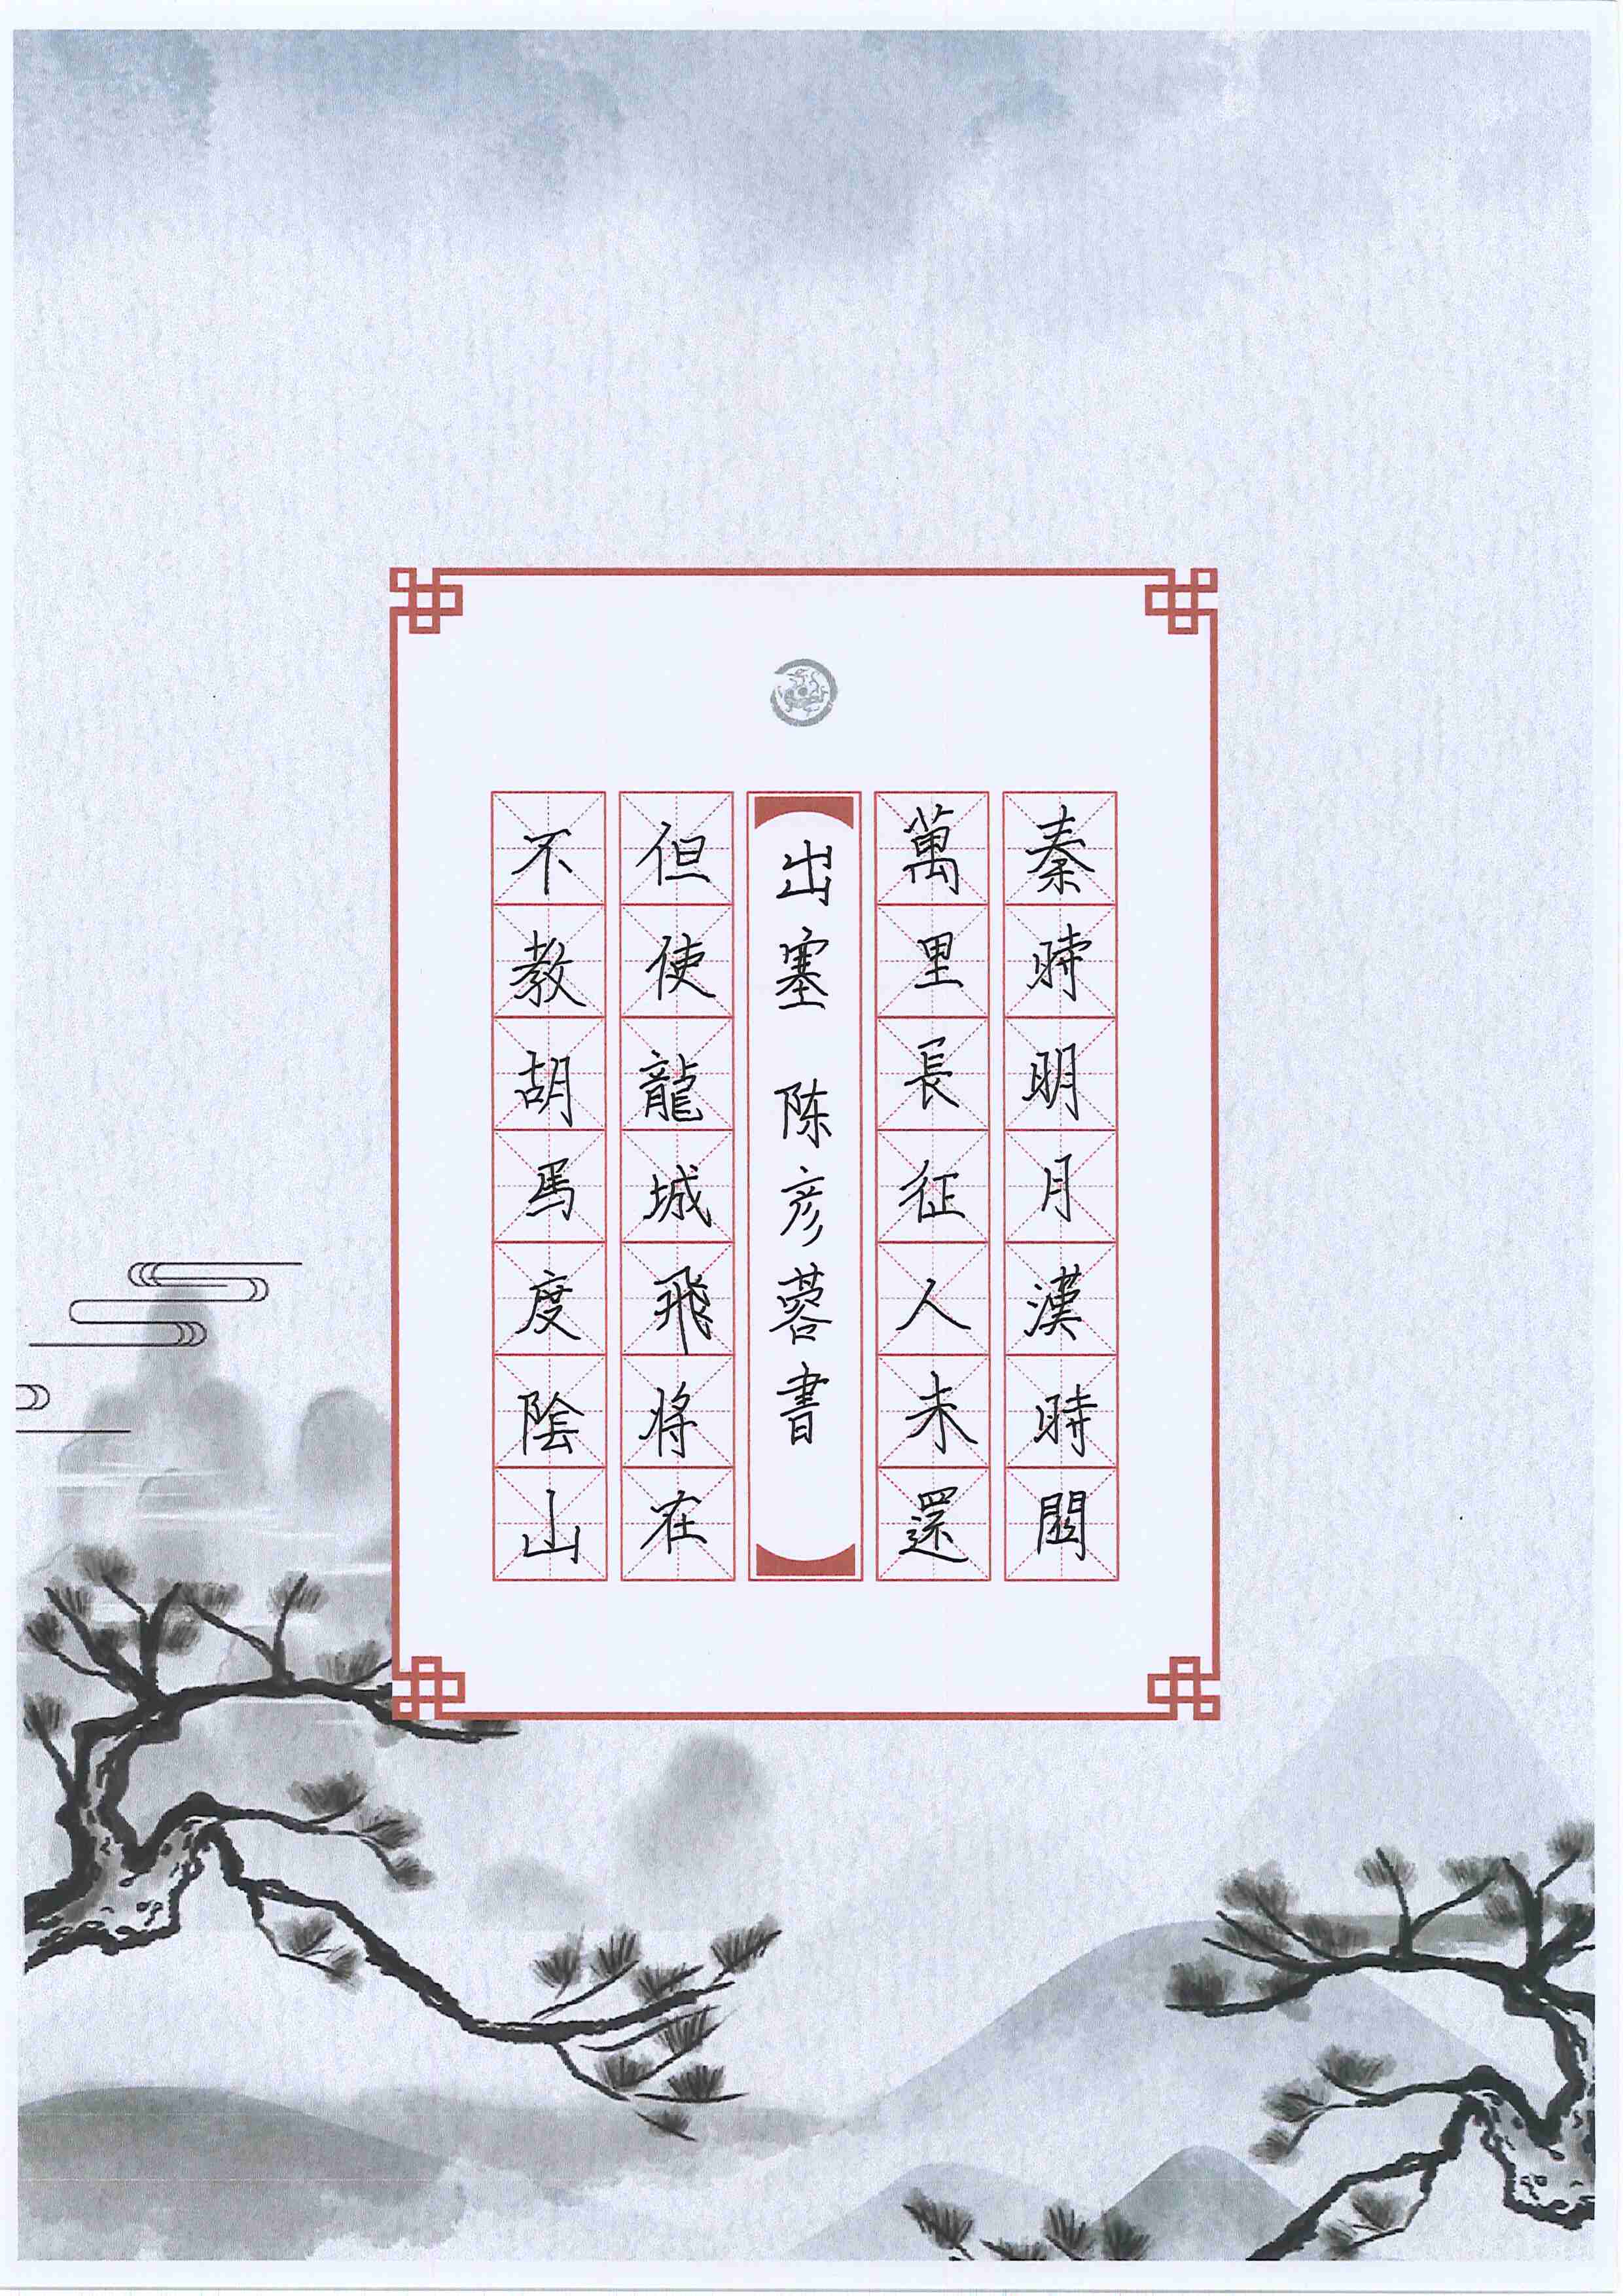 秦時明月漢時關
萬里長征人未還
出塞 陈彦蓉書
但使龍城飛将在
不教胡馬度陰山